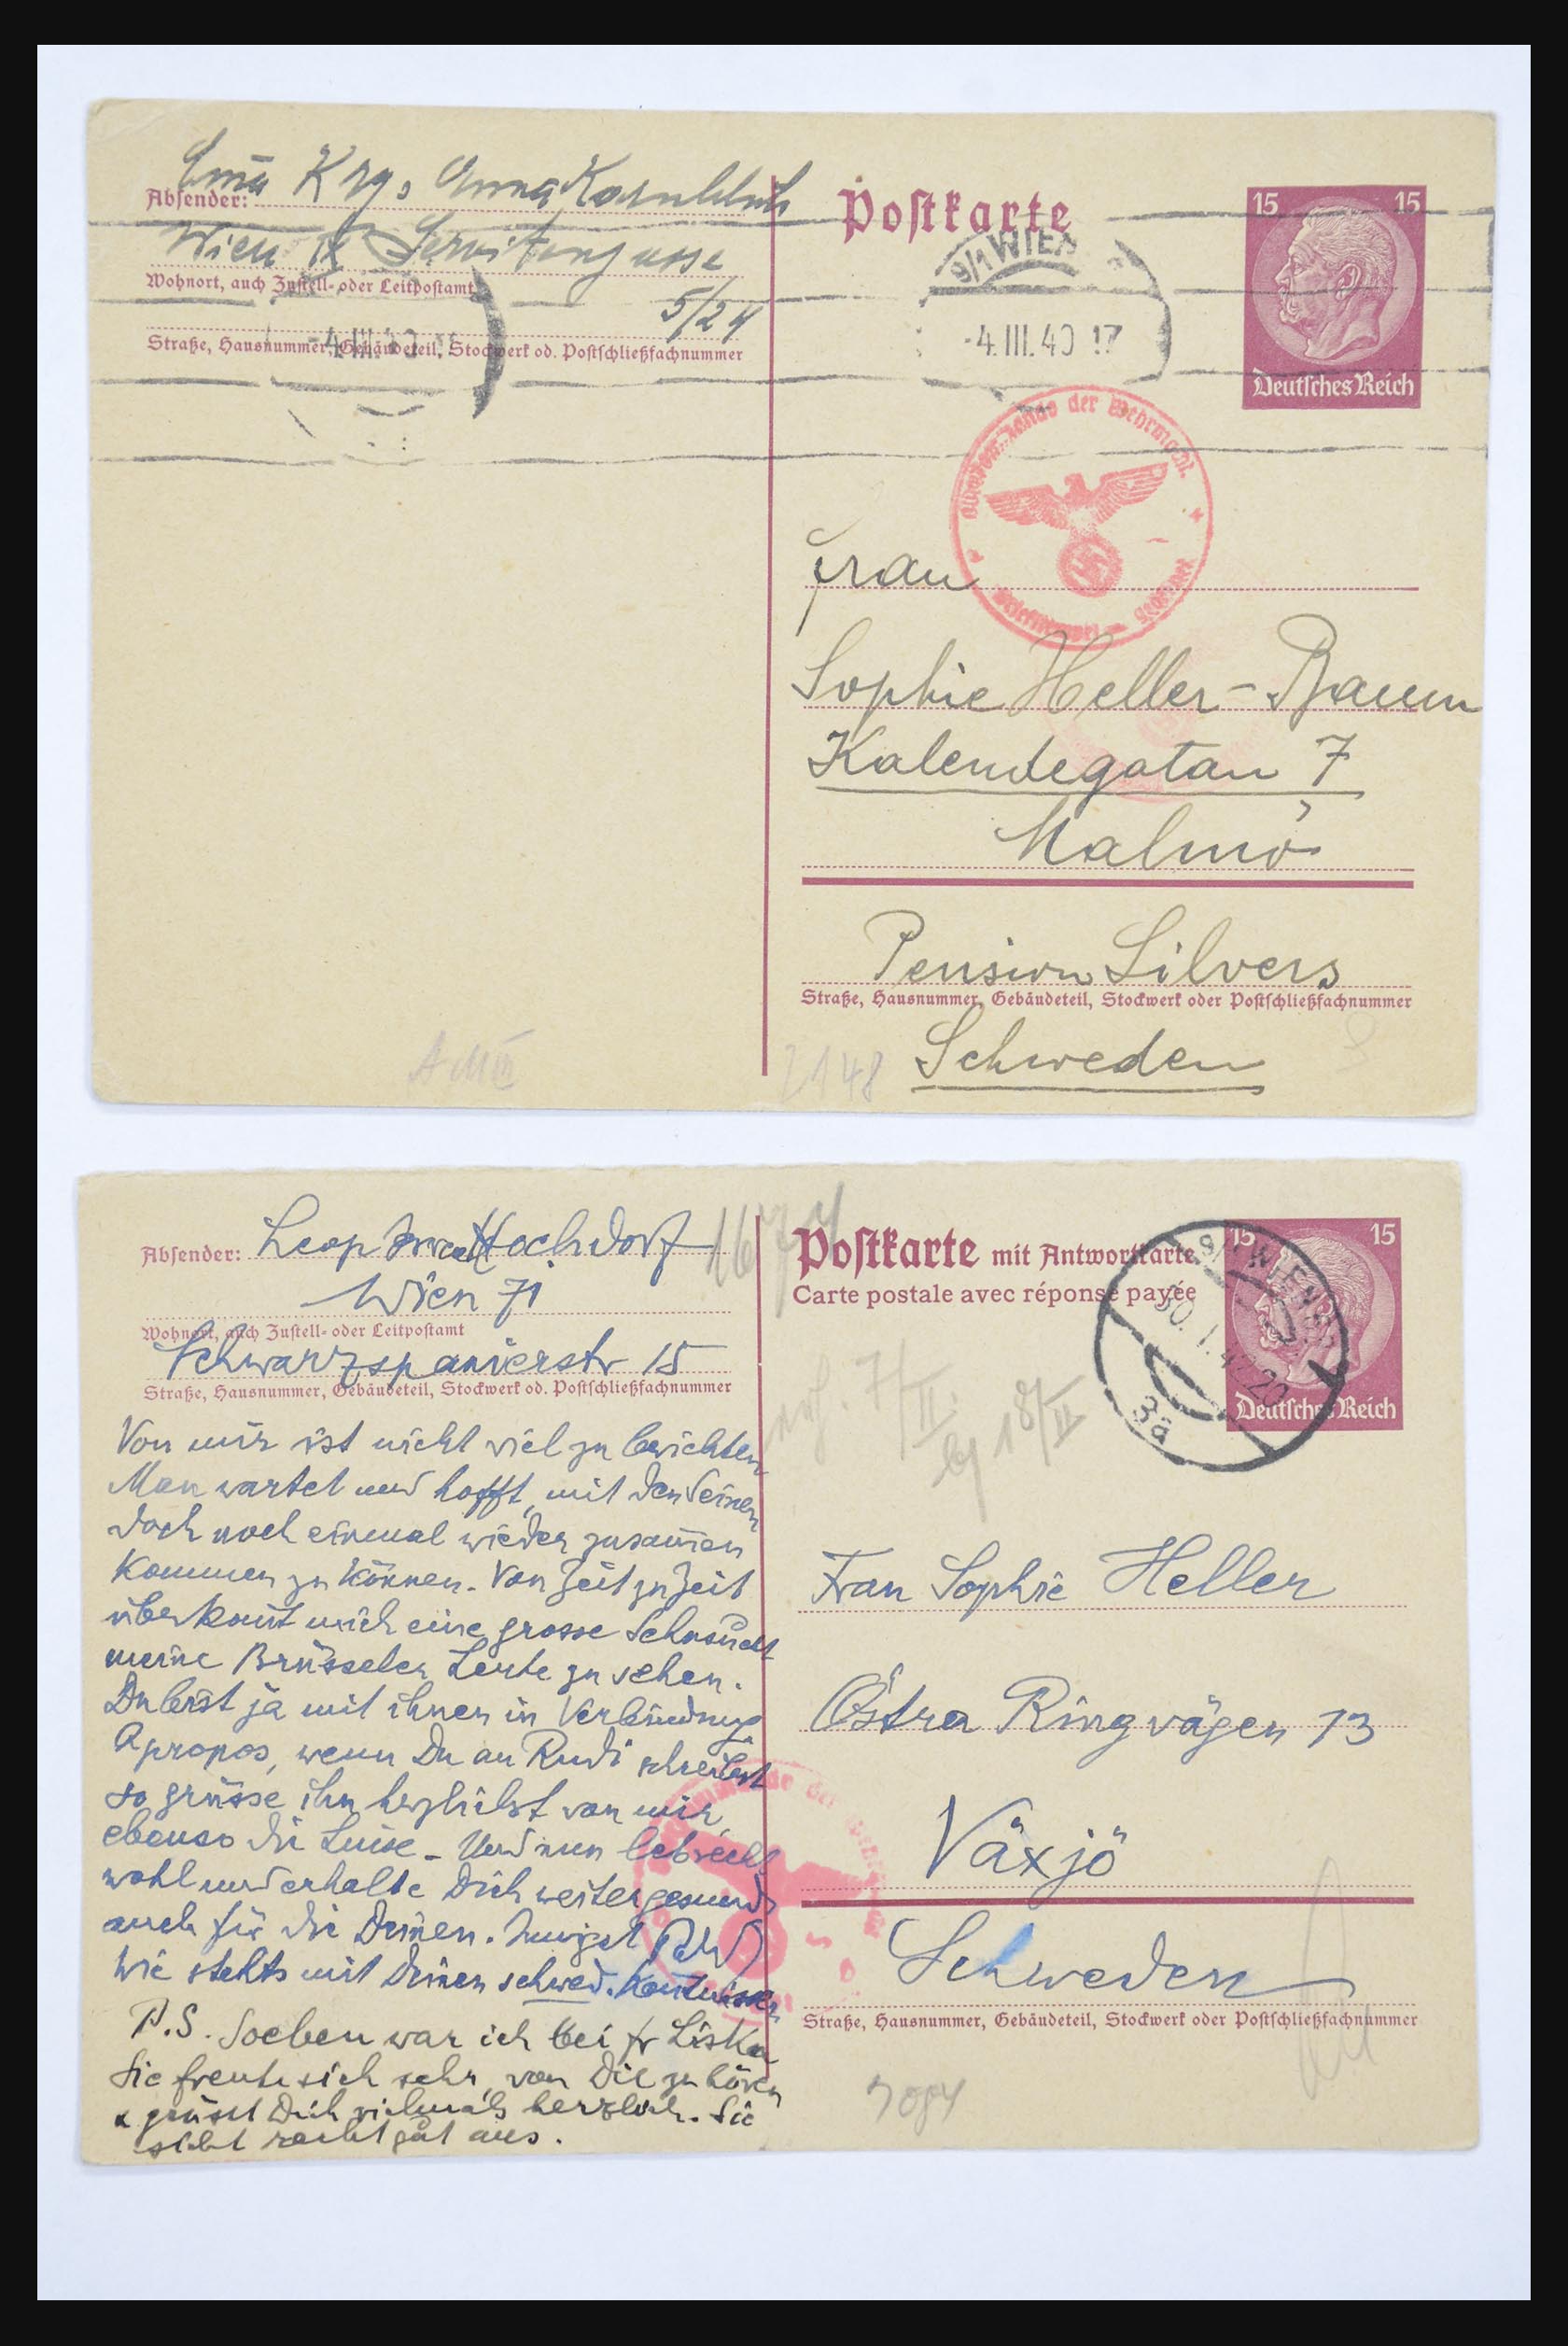 Anna Kornblüh
Absender:
Wien IX Servitengasse
Wohnort, auch Zustell- oder Leitpostamt
5/24
Straße, Hausnummer, Gebäudeteil, Stockwerk od. Postschließfachnummer
-4.III.40
Postkarte
9/1 WIEN
-4.III.40 17
15 15
Deutsches Reich
der Wehrmacht
Frau
Sophie Heller-Baum
Kalendegatan 7
Malmö
Pension Silvers
Straße, Hausnummer, Gebäudeteil, Stockwerk oder Postschließfachnummer
Schweden
2148
Absender: Leop Hochdorf
Wien 71
Wohnort, auch Zustell- oder Leitpostamt
Schwarzspanierstr 15
Straße, Hausnummer, Gebäudeteil, Stockwerk od. Postschließfachnummer
Von mir ist nicht viel zu berichten
Man wartet und hofft, mit den Seinen
doch noch einmal wieder zusam̅en
kommen zu können. Von Zeit zu Zeit
überkom̅t mich eine grosse Sehnsucht
meine Brüsseler Leute zu sehen.
Du bist ja mit ihnen in Verbindung
Apropos, wenn Du an Rudi schreibst
so grüsse ihn herzlichst von mir
ebenso die Luise - Und nun leb recht
wohl und erhalte Dich weiter gesund
auch für die Deinen. Innigst
Wie stehts mit Deinen schwed. Kentnissen
P.S. Soeben war ich bei fr Liska
Sie freute sich sehr, von Dir zu hören
& grüsst Dich vielmals herzlich. Sie
sieht recht gut aus.
Postkarte mit Antwortkarte
Carte postale avec réponse payée
15 15
Deutsches Reich
WIEN
3ä
7/II.
18/II
Frau Sophie Heller
Östra Ringvägen 13
Växjö
Schweden
Straße, Hausnummer, Gebäudeteil, Stockwerk oder Postschließfachnummer